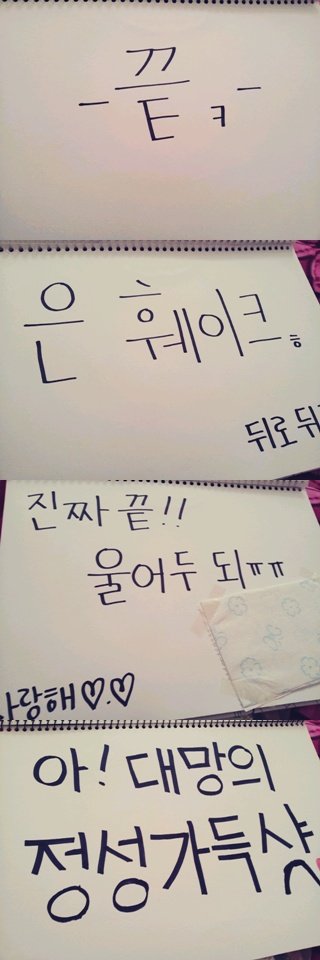 -끝ㅋ-
은 훼이크ㅎ
뒤로 뒤
진짜 끝!!
울어두 되ㅠㅠ
사랑해♡.♡
아! 대망의
정성가득샷